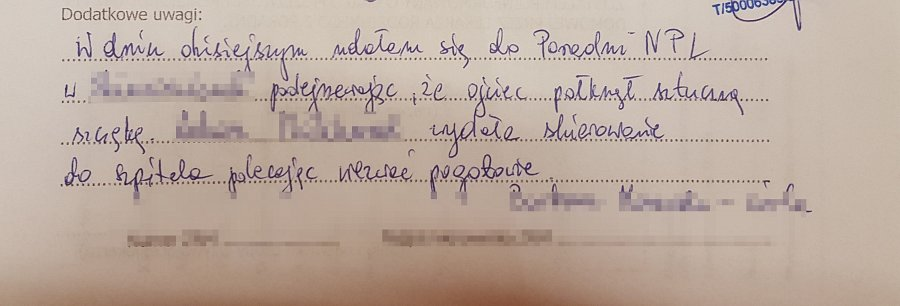 Dodatkowe uwagi:
T/5000638
W dniu dzisiejszym udałam się do Poradni NPL
w podejrzewając, że ojciec połknął sztuczną
szczękę. wydała skierowanie
do szpitala polecając wezwać pogotowie.